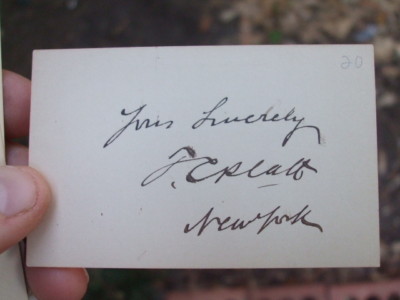 20
Yours Sincerely
T. C. Platt
New York